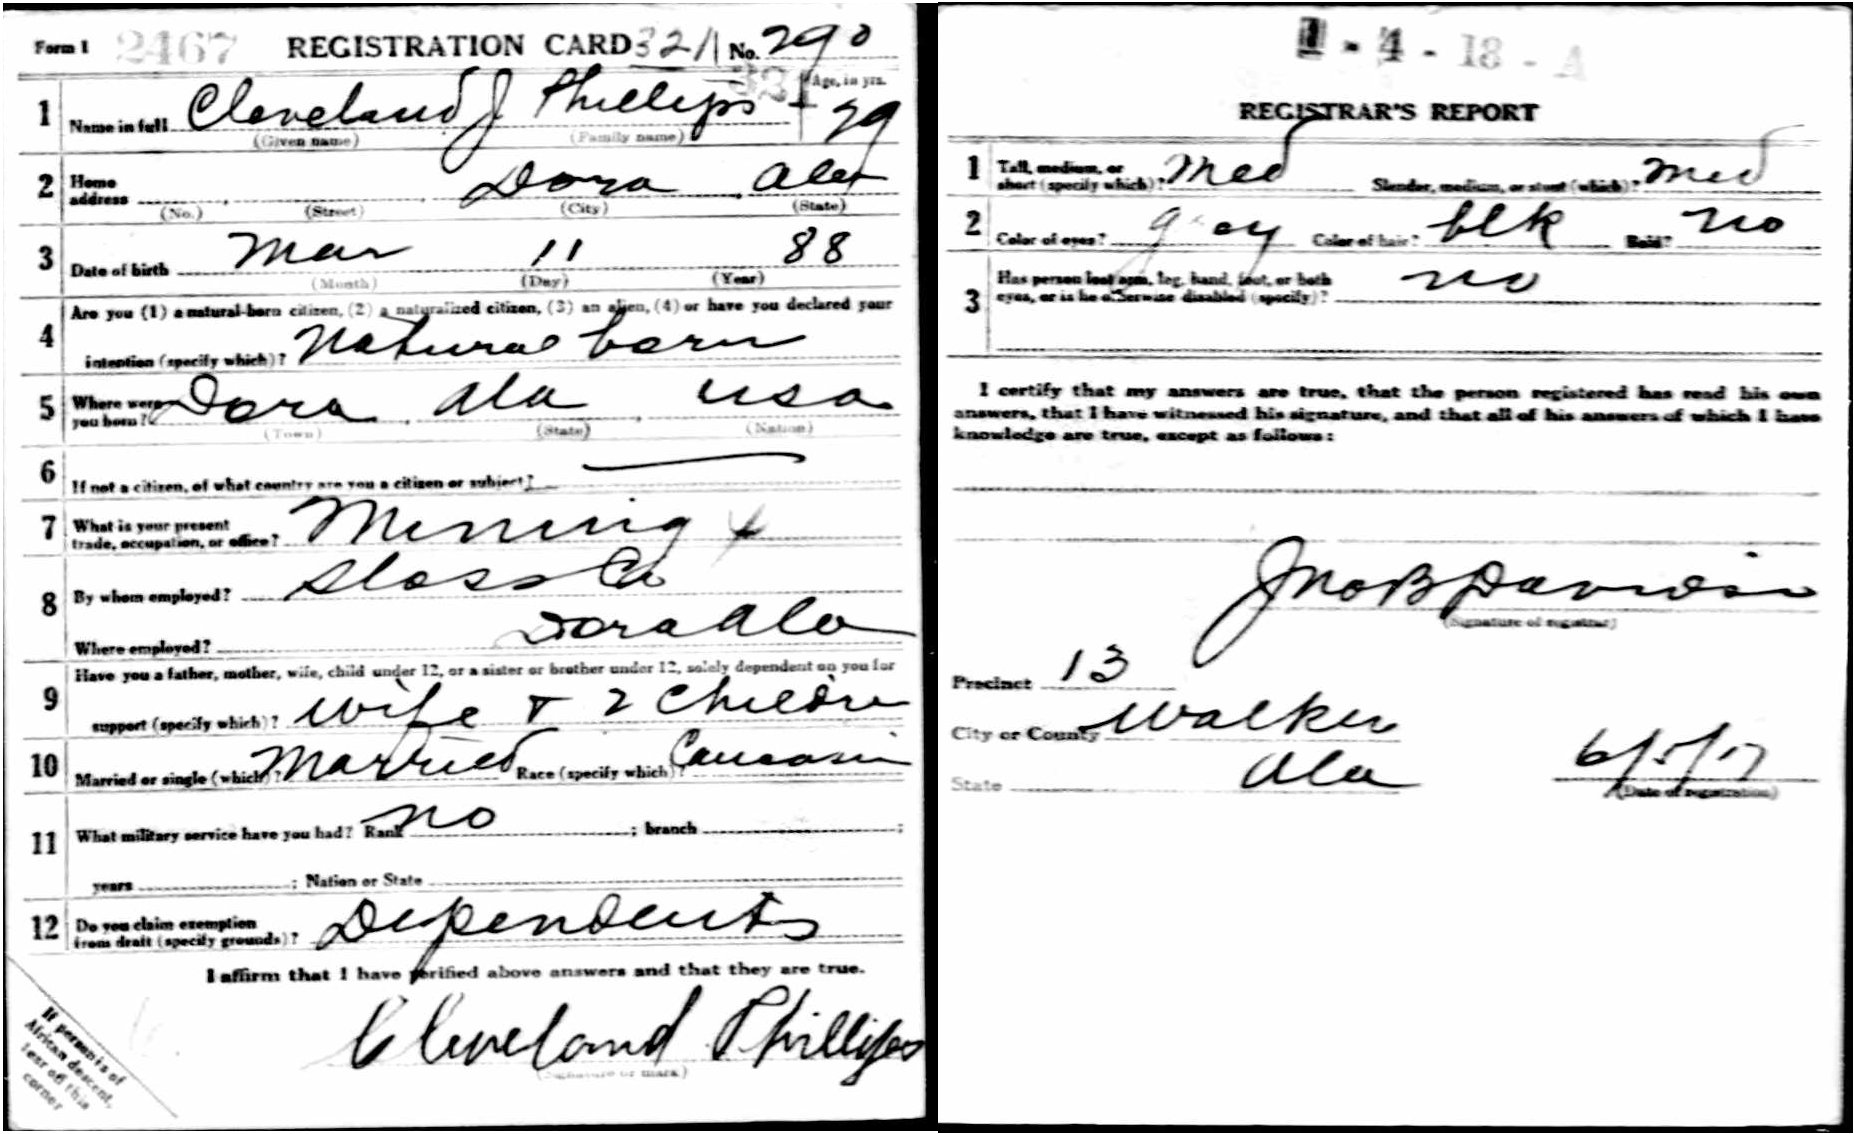 Form 1 2467 REGISTRATION CARD 321 No. 290
321 Age, in yrs.
1 Name in full Cleveland J Phillips 29
(Given name) (Family name)
2 Home address Dora Ala
(No.) (Street) (City) (State)
3 Date of birth Mar 11 88
(Month) (Day) (Year)
4 Are you (1) a natural-born citizen, (2) a naturalized citizen, (3) an alien, (4) or have you declared your
intention (specify which)? Natural born
5 Where were you born? Dora Ala USA
(Town) (State) (Nation)
6 If not a citizen, of what country are you a citizen or subject?
7 What is your present
trade, occupation, or office? Mining x
8 By whom employed? Sloss Co
Where employed? Dora Ala
9 Have you a father, mother, wife, child under 12, or a sister or brother under 12, solely dependent on you for
support (specify which)? Wife + 2 Children
10 Married or single (which)? Married Race (specify which)? Caucasin
11 What military service have you had? Rank no ; branch ;
years ; Nation or State
12 Do you claim exemption
from draft (specify grounds)? Dependents
I affirm that I have verified above answers and that they are true.
Cleveland Phillips
(Signature or mark)
If person is of
African descent,
tear off this
corner
1 - 4 - 18 - A
REGISTRAR'S REPORT
1 Tall, medium, or
short (specify which)? Med Slender, medium, or stout (which)? Med
2 Color of eyes? gray Color of hair? blk Bald? no
3 Has person lost arm, leg, hand, foot, or both
eyes, or is he otherwise disabled (specify)? no
I certify that my answers are true, that the person registered has read his own
answers, that I have witnessed his signature, and that all of his answers of which I have
knowledge are true, except as follows:
Jno B Davison
(Signature of registrar)
Precinct 13
City or County Walker
State Ala 6/5/17
(Date of registration)